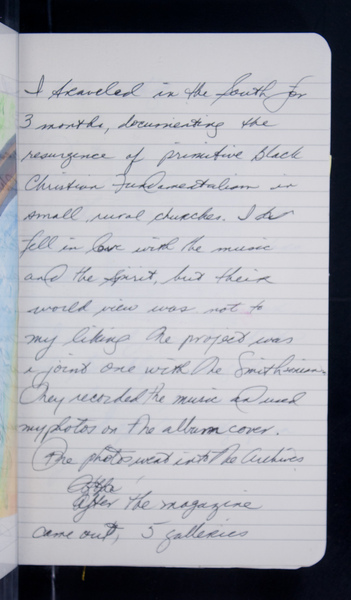 I traveled in the South for
3 months, documenting the
resurgence of primitive Black
Christian Fundamentalism in
small, rural churches. I do
fell in love with the music
and the spirit, but their
world view was not to
my liking. The project was
a joint one with the Smithsinian.
They recorded the music and used
my photos on the album cover.
The photos went into the Archives
After the magazine
came out, 5 galleries